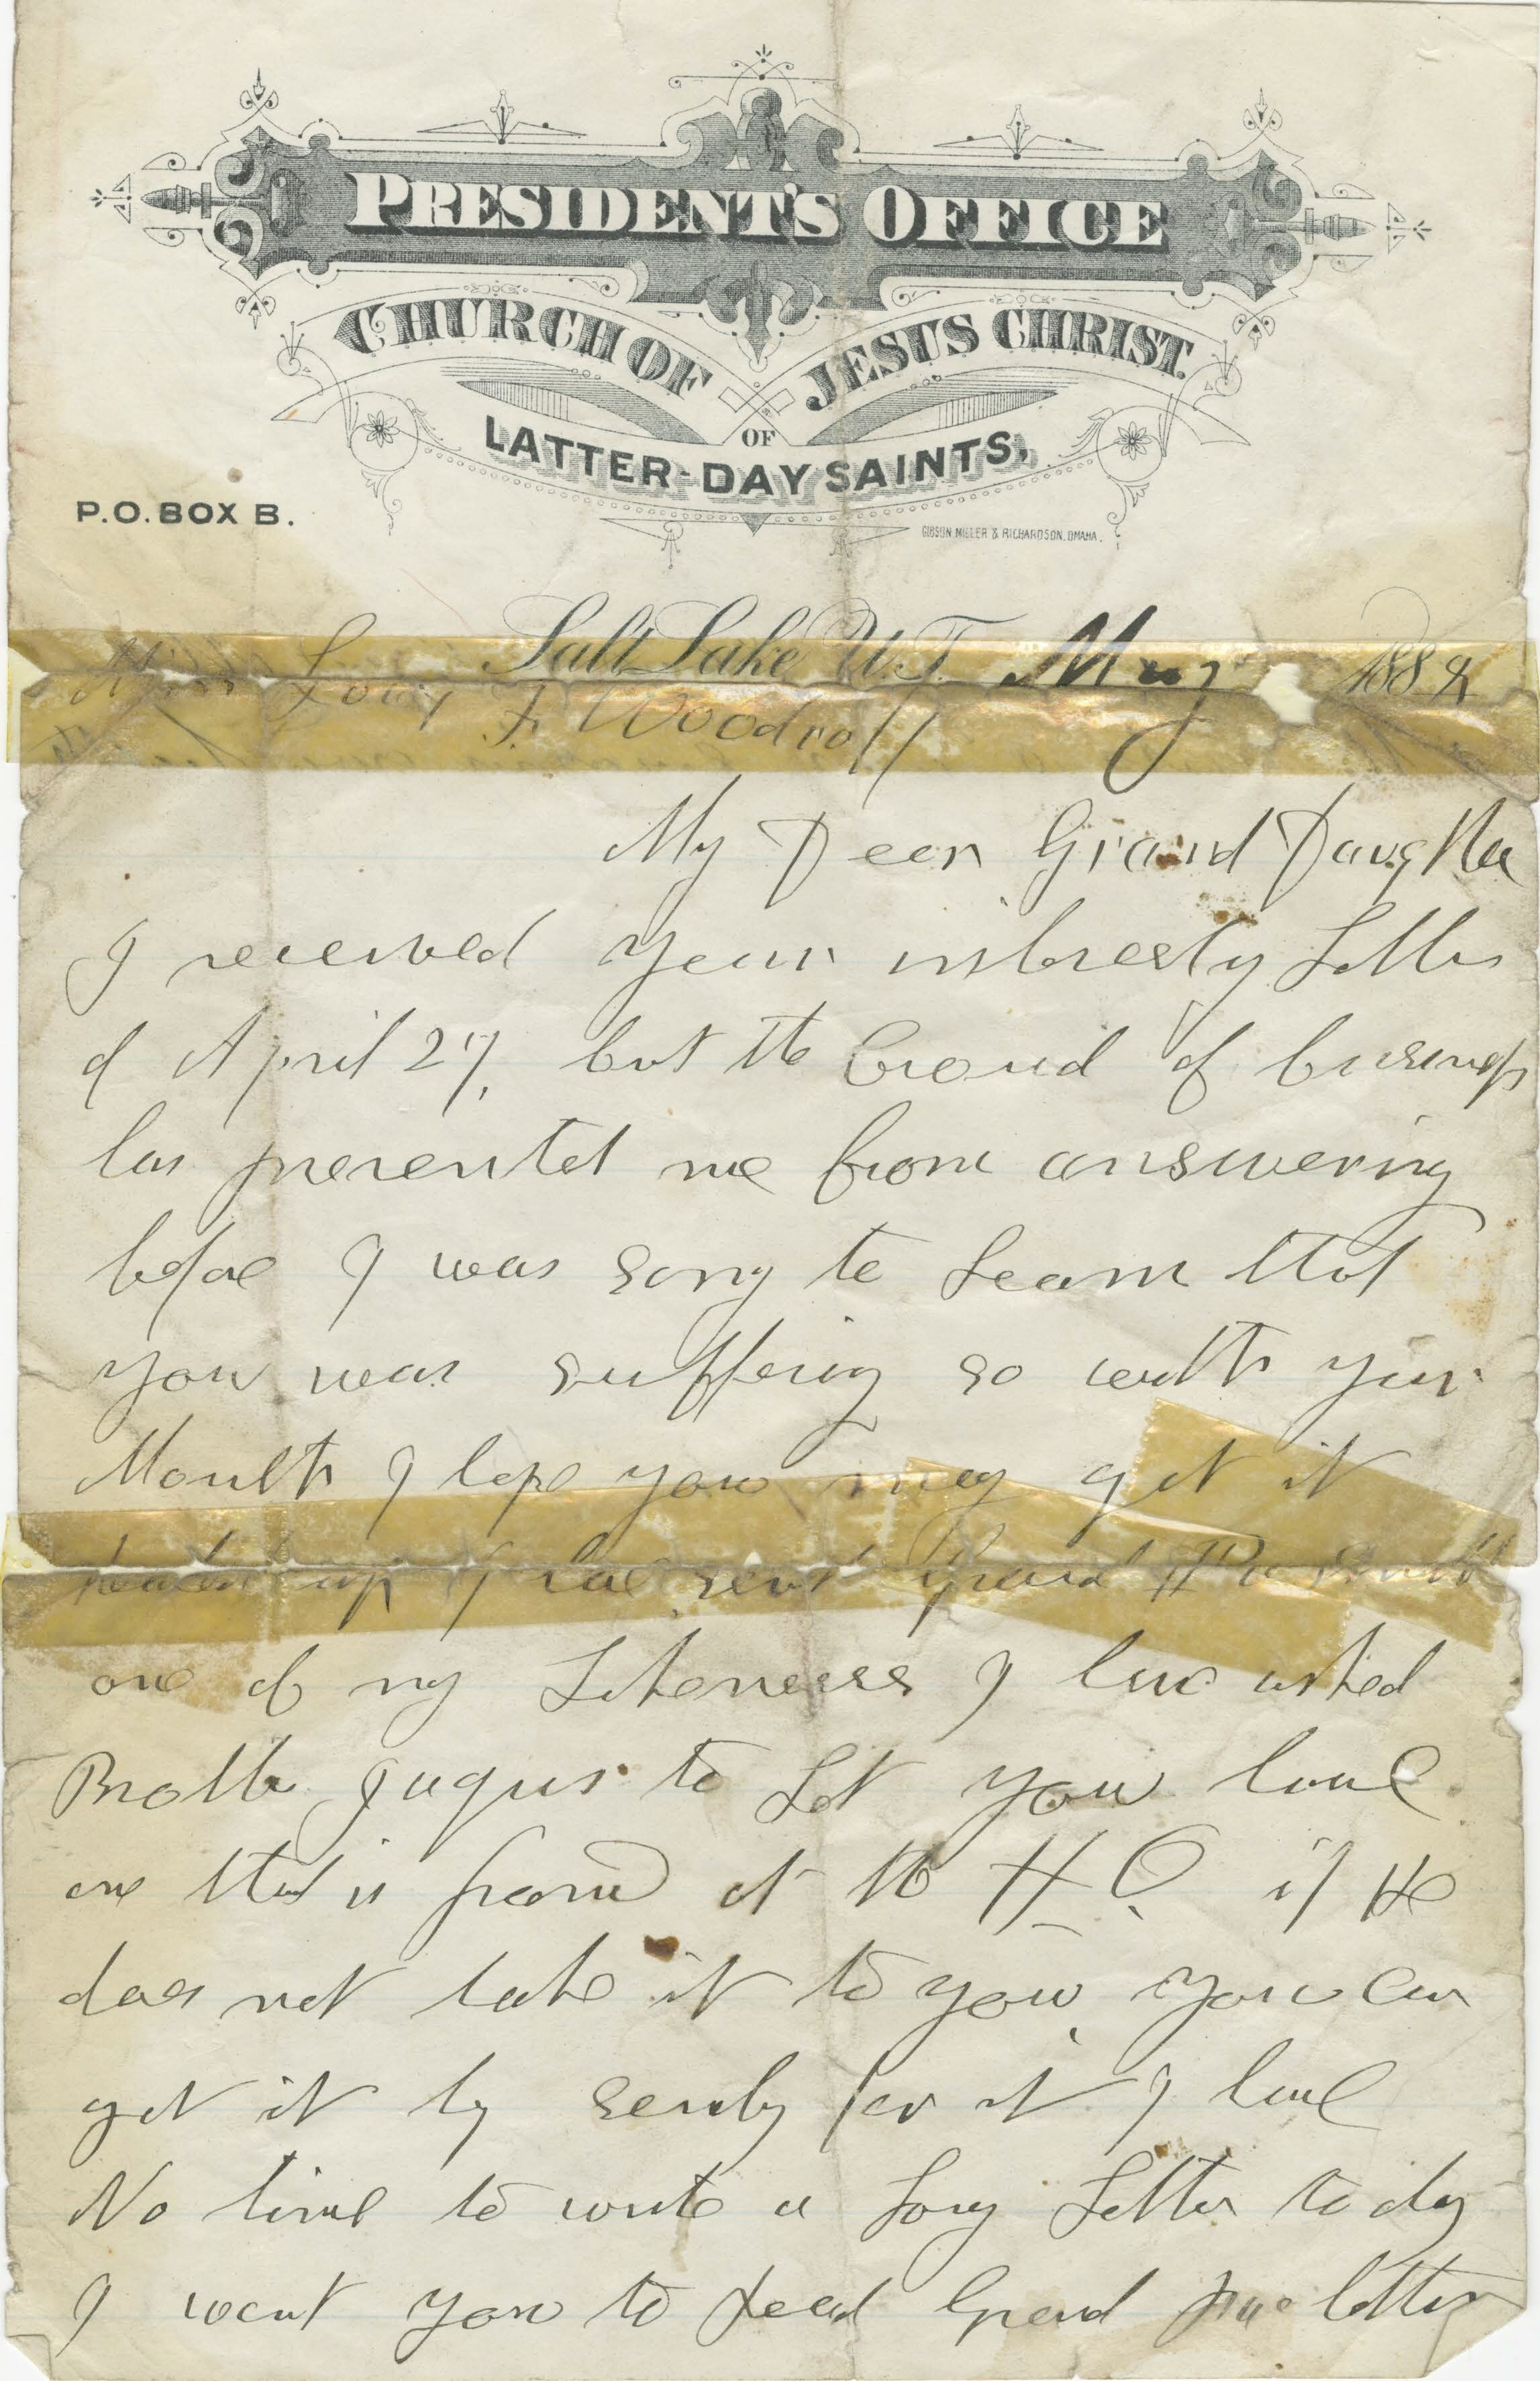 PRESIDENT'S OFFICE
CHURCH OF JESUS CHRIST
OF
LATTER-DAY SAINTS,
P.O. BOX B.
GIBSON MILLER & RICHARDSON. OMAHA.
Salt Lake U.T. May 188
Miss F. Woodroff
My Deer Grand Daughter
I received your interesty Letter
of April 27, but the Croud of business
has preventet me from answering
before I was sorry to Learn that
you was suffering so with your
Mouth I hope you may get it
up I have sent Grand Pa
one of my Likenesses I have asked
Brother to Let you have
one that is framed at the H. O. if He
does not take it to you, you can
get it by sendy for it I have
No time to write a Long Letter to day
I want you to Read Grand letter